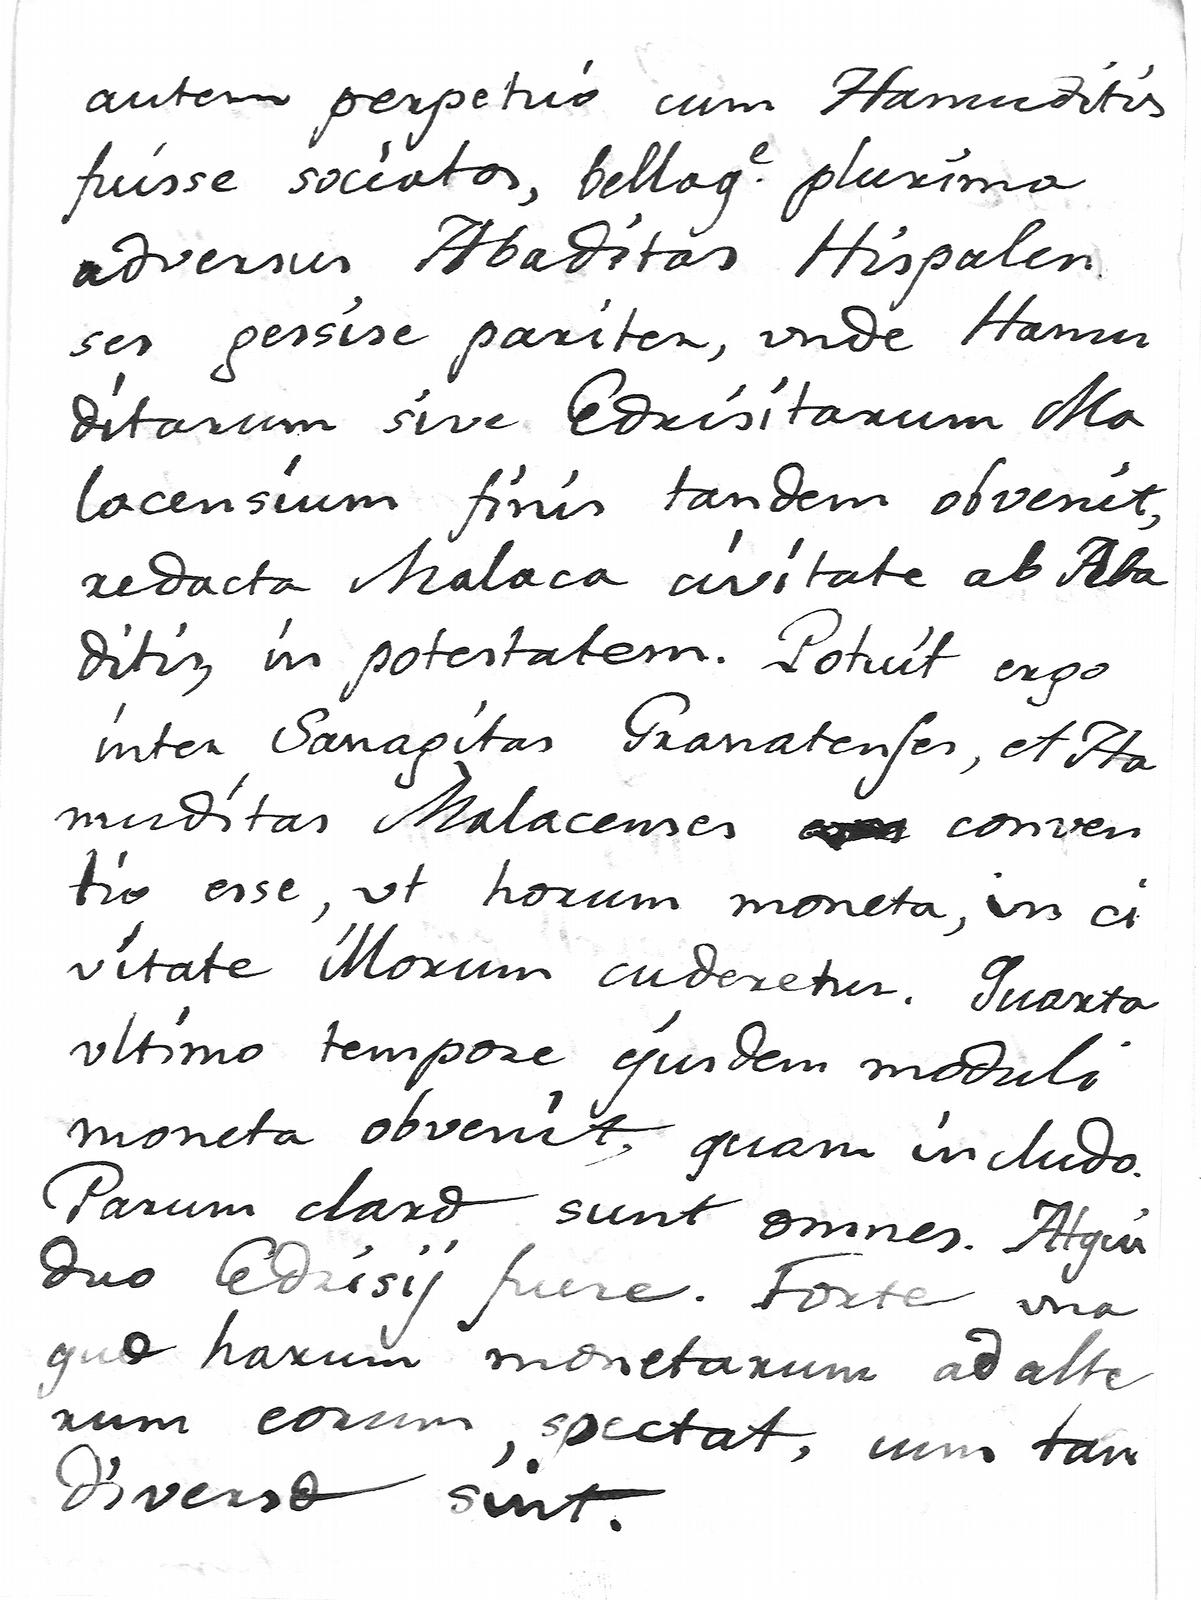 autem perpetuò cum Hamuditis
fuisse sociatos, bellaq.e plurima
adversus Abaditas Hispalen
ses gessise pariter, vnde Hamu
ditarum sive Edrisitarum Ma
lacensium finis tandem obvenit,
redacta Malaca civitate ab Aba
ditis, in potestatem. Potuit ergo
inter Sanagitas Granatenses, et Ha
muditas Malacenses conven
tio esse, vt horum moneta, in ci
vitate illorum cuderetur. Quarta
vltimo tempore ejusdem moduli
moneta obvenit, quam includo.
Parum claræ sunt omnes. At qui
duo Edrisij fuere. Forte vna
quæ harum monetarum ad alte
rum eorum, spectat, cum tan
diversæ sint.